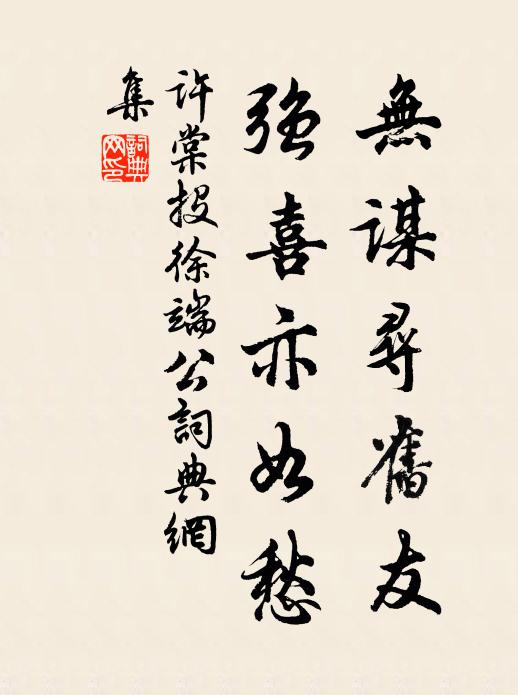 無謀尋舊友
強喜亦如愁
許棠投徐端公詞典網
集
詞典
网印